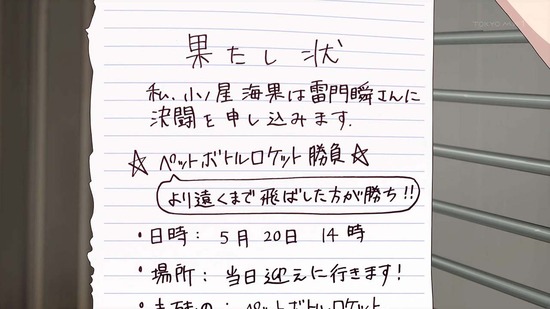 果たし状
私、小ノ星 海果は雷門瞬さんに
決闘を申し込みます.
☆ペットボトルロケット勝負☆
より遠くまで飛ばした方が勝ち!!
・日時: 5月20日 14時
・場所: 当日迎えに行きます!
ペットボトルロケット
TOKYO MX